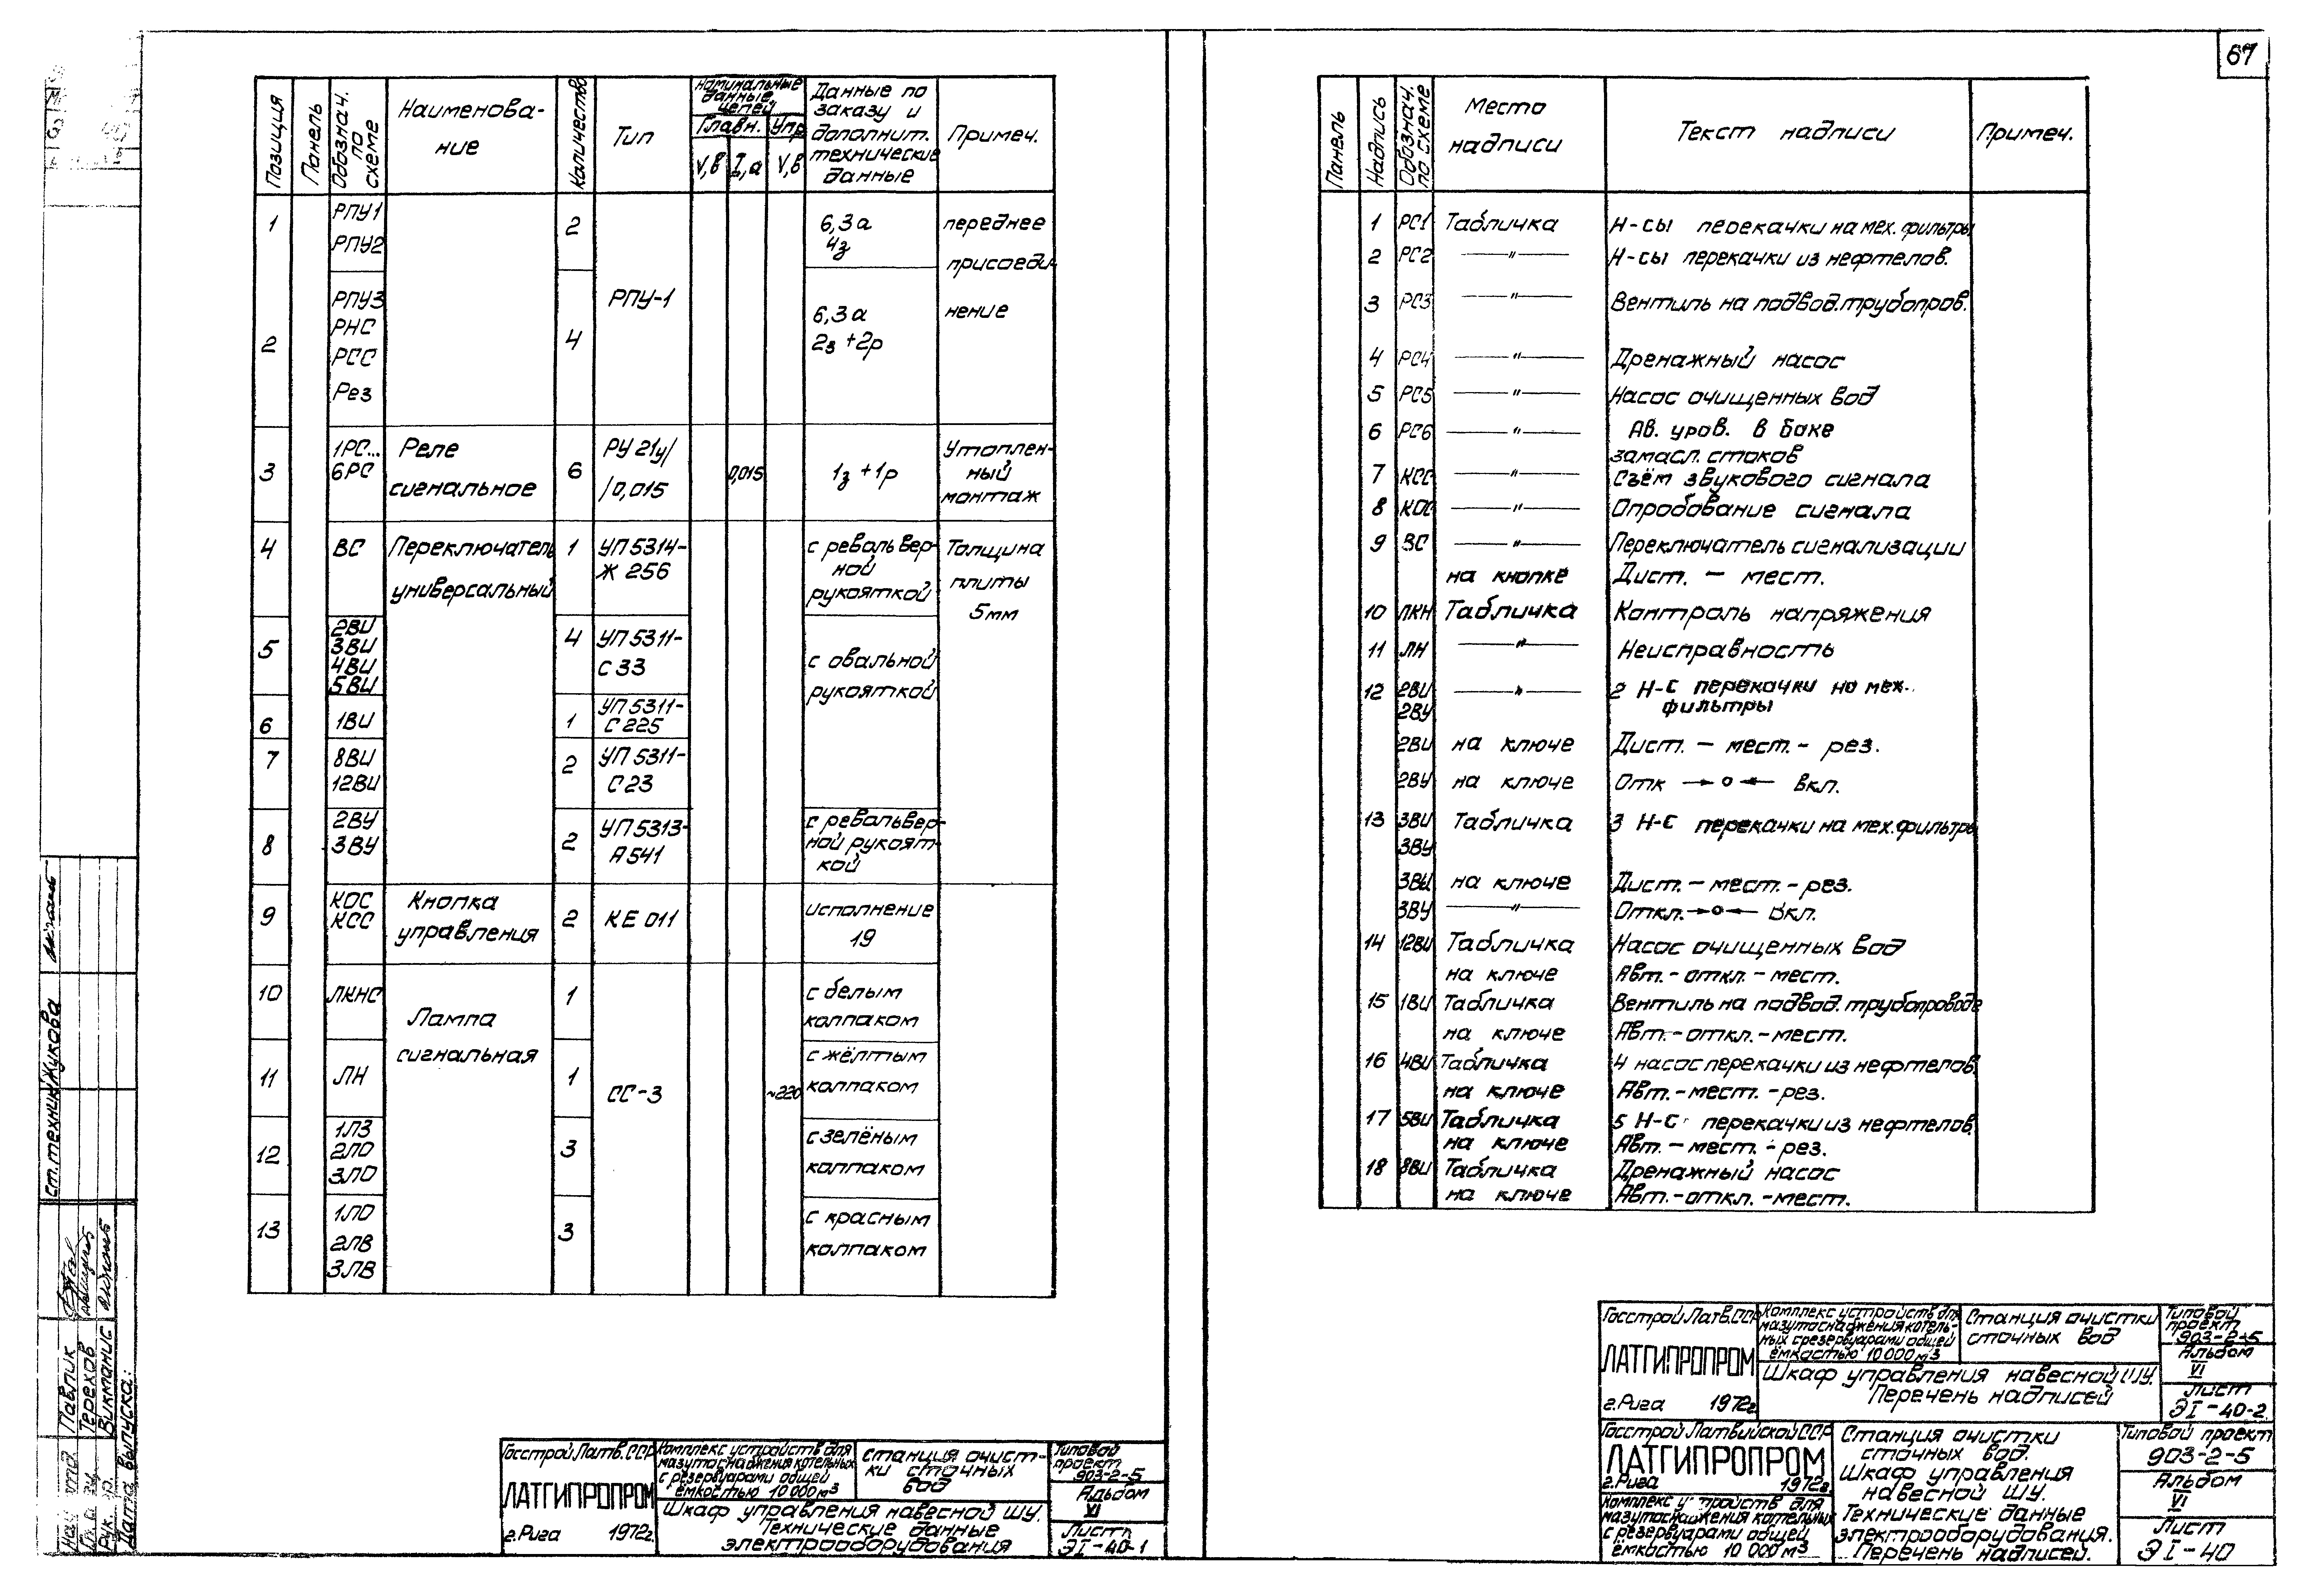 67
Позиция
Панель
Обознач. по схеме
Наименова-
ние
Количество
Тип
Номинальные
данные
цепей
Главн. Упр
V,в I,а V,в
Данные по
заказу и
дополнит.
технические
данные
Примеч.
1 РПУ1 2 6,3а переднее
РПУ2 4з присоеди-
РПУ-1
2 РПУ3 4 6,3а нение
РНС 2з+2р
РСС
Рез
3 1РС... Реле 6 РУ21у/ 0,015 1з+1р Утоплен-
6РС сигнальное /0,015 ный
монтаж
4 ВС Переключатель 1 УП5314- с револьвер- Толщина
универсальный Ж256 ной плиты
рукояткой 5мм
5 2ВИ 4 УП5311- с овальной
3ВИ С33 рукояткой
4ВИ
5ВИ
6 1ВИ 1 УП5311-
С225
7 8ВИ 2 УП5311-
12ВИ С23
8 2ВУ 2 УП5313- с револьвер-
3ВУ А541 ной рукоят-
кой
9 КОС Кнопка 2 КЕ011 исполнение
КСС управления 19
10 ЛКНС Лампа 1 с белым
сигнальная колпаком
11 ЛН 1 СС-3 ~220 с жёлтым
колпаком
12 1ЛЗ 3 с зелёным
2ЛО колпаком
3ЛО
13 1ЛО 3 с красным
2ЛВ колпаком
3ЛВ
Госстрой Латв.ССР
ЛАТГИПРОПРОМ
г.Рига 1972г.
Комплекс устройств для
мазутоснабжения котельных
с резервуарами общей
ёмкостью 10000м3
Станция очист-
ки сточных
вод
Типовой
проект
903-2-5
Альбом
VI
Лист
ЭI-40-1
Шкаф управления навесной ШУ.
Технические данные
электрооборудования
Панель
Надпись
Обознач. по схеме
Место
надписи
Текст надписи
Примеч.
1 РС1 Табличка Н-сы перекачки на мех. фильтры
2 РС2 —"— Н-сы перекачки из нефтелов.
3 РС3 —"— Вентиль на подвод.трубопров.
4 РС4 —"— Дренажный насос
5 РС5 —"— Насос очищенных вод
6 РС6 —"— Ав. уров. в баке
замасл. стоков
7 КСС —"— Съём звукового сигнала
8 КОС —"— Опробование сигнала
9 ВС —"— Переключатель сигнализации
на кнопке Дист. — мест.
10 ЛКН Табличка Контроль напряжения
11 ЛН —"— Неисправность
12 2ВИ —"— 2 Н-С перекачки на мех.
2ВУ фильтры
2ВИ на ключе Дист. — мест. - рез.
2ВУ на ключе Отк →о← вкл.
13 3ВИ Табличка 3 Н-С перекачки на мех.фильтры
3ВУ
3ВИ на ключе Дист. — мест. - рез.
3ВУ —"— Откл.→о← Вкл.
14 12ВИ Табличка Насос очищенных вод
на ключе Авт.-откл.-мест.
15 1ВИ Табличка Вентиль на подвод.трубопроводе
на ключе Авт.-откл.-мест.
16 4ВИ Табличка 4 насос перекачки из нефтелов.
на ключе Авт.-мест.-рез.
17 5ВИ Табличка 5 Н-С перекачки из нефтелов.
на ключе Авт.-мест.-рез.
18 8ВИ Табличка Дренажный насос
на ключе Авт.-откл.-мест.
Госстрой Латв.ССР
ЛАТГИПРОПРОМ
г.Рига 1972г.
Комплекс устройств для
мазутоснабжения котель-
ных с резервуарами общей
ёмкостью 10000м3
Станция очистки
сточных вод
Типовой
проект
903-2-5
Альбом
VI
Лист
ЭI-40-2
Шкаф управления навесной ШУ.
Перечень надписей
Госстрой Латвийской ССР
ЛАТГИПРОПРОМ
г.Рига 1972г.
Комплекс устройств для
мазутоснабжения котельных
с резервуарами общей
ёмкостью 10000м3
Станция очистки
сточных вод.
Шкаф управления
навесной ШУ.
Технические данные
электрооборудования.
Перечень надписей.
Типовой проект
903-2-5
Альбом
VI
Лист
ЭI-40
ст.техник Жукова
Павлик
Терехов
Викманис
Дата выпуска: